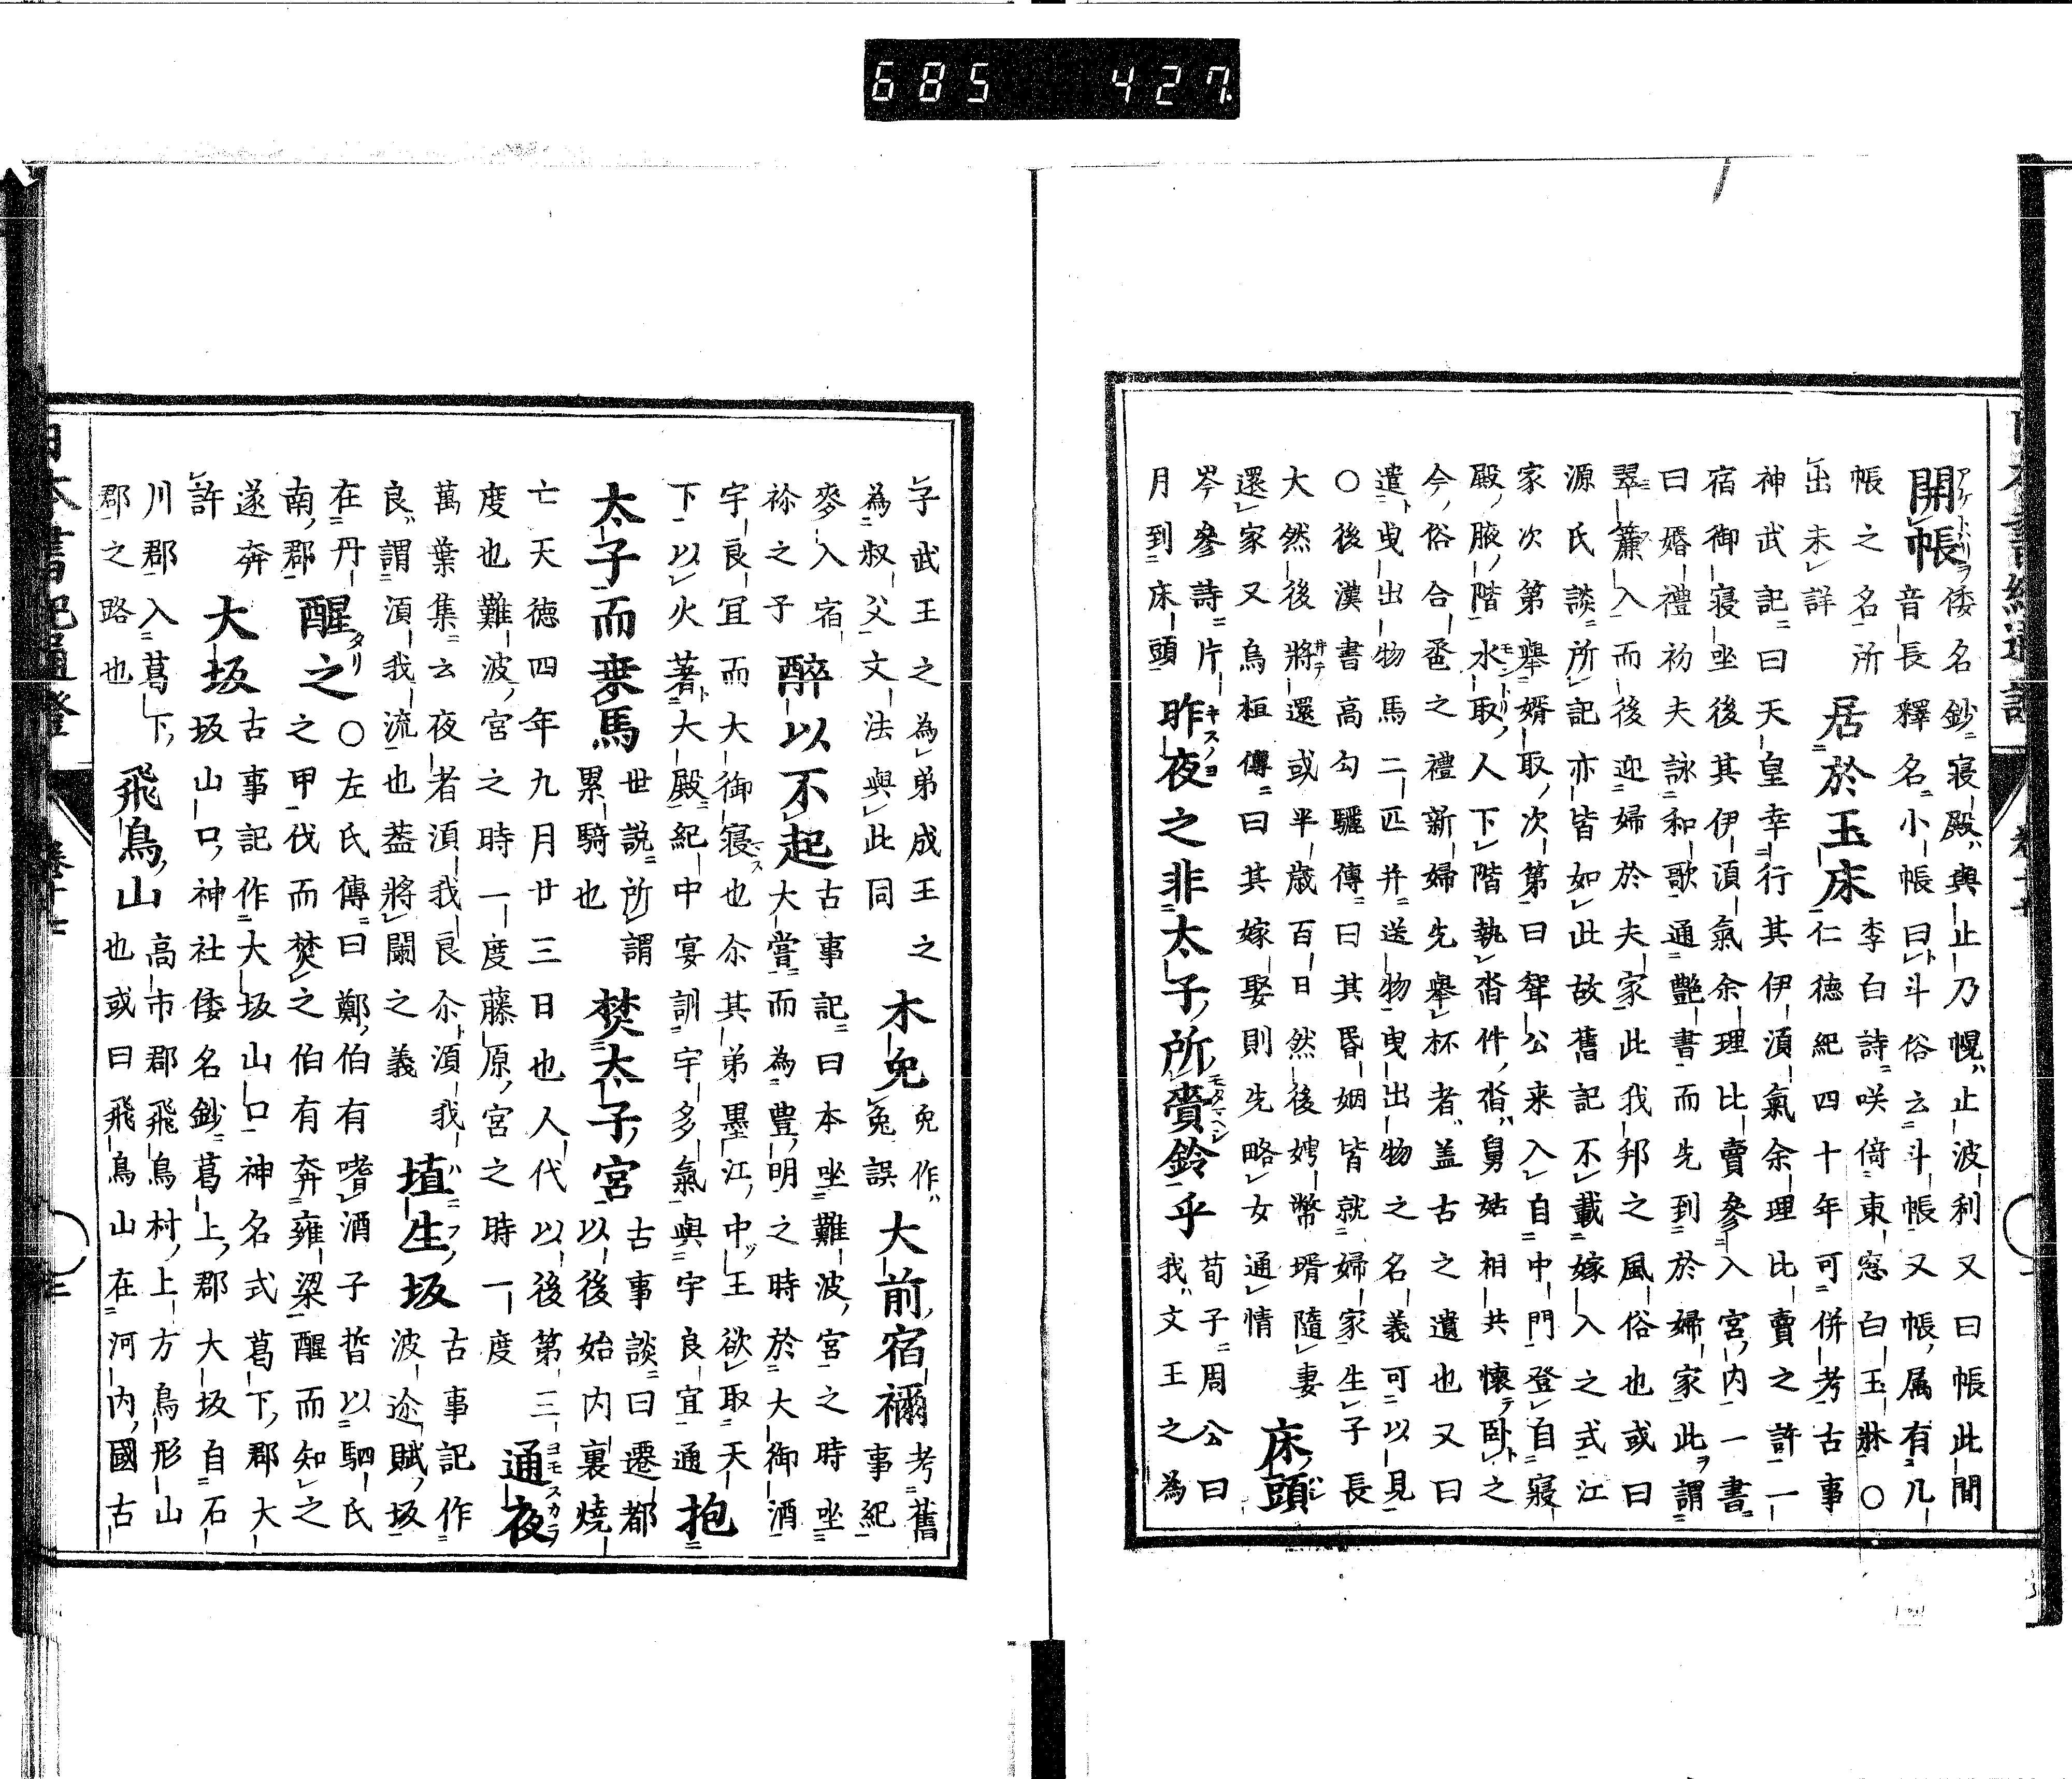 685 427
開帳倭名鈔寢殿與止乃幌止波利又曰帳此間
音長釋名小帳曰斗俗云斗帳又帳属有几
帳之名所李白詩咲倚東窓白玉牀○
出未詳居於玉床仁德紀四十年可併考古事
神武記曰天皇幸行其伊湏氣余理比賣之許一
宿御寢坐後其伊湏氣余理比賣參入宮内一書
曰婚禮初夫詠和歌通艶書而先到於婦家此謂
翠簾入而後迎婦於夫家此我邦之風俗也或曰
源氏談所記亦皆如此故舊記不載嫁入之式江
家次第舉婿取次第曰聟公来入自中門登自寢
殿腋階水取人下階執沓件沓舅姑相共懷臥之
今俗合巹之禮新婦先舉杯者盖古之遺也又曰
遣曳出物馬二匹并送物曳出物之名義可以見
○後漢書高勾驪傳曰其昏姻皆就婦家生子長
大然後將還或半歳百日然後娉幣壻隨妻
還家又烏桓傳曰其嫁娶則先略女通情床頭
岑參詩片昨夜之非太子所賷鈴乎荀子周公曰
月到床頭我文王之為
子武王之為弟成王之木免免作大前宿禰考舊
為叔父文法與此同兔誤事紀
麥入宿醉以不起古事記曰本坐難波宮之時坐
袮之子大嘗而為豊明之時於大御酒
宇良冝而大御寢也尒其弟墨江中王欲取天抱
下以火著大殿紀中宴訓宇多氣與宇良宜通
太子而乗馬世説所謂焚太子宮古事談曰遷都
累騎也以後始内裏焼
亡天德四年九月廿三日也人代以後第三通夜
度也難波宮之時一度藤原宮之時一度
萬葉集云夜者湏我良尒湏我埴生坂古事記作
良謂湏我流也葢將闌之義波迩賦坂
在丹醒之○左氏傳曰鄭伯有嗜酒子晳以駟氏
南郡之甲伐而焚之伯有奔雍梁醒而知之
遂奔大坂古事記作大坂山口神名式葛下郡大
許坂山口神社倭名鈔葛上郡大坂自石
川郡入葛下飛鳥山高市郡飛鳥村上方鳥形山
郡之路也也或曰飛鳥山在河内國古
日本書紀通證 卷十七 三